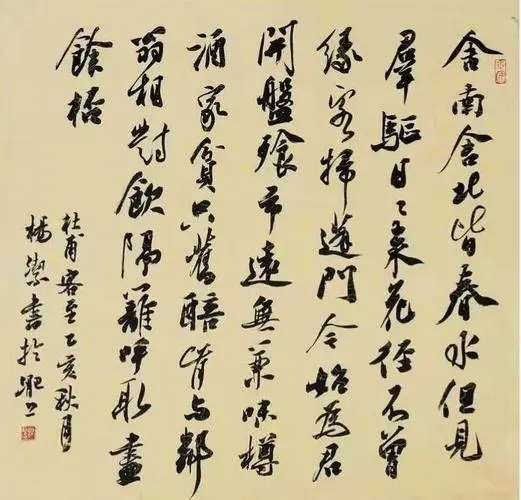 舍南舍北皆春水但見
羣驅日〻来花徑不曾
緣客掃蓬門今始為君
開盤飧市遠無兼味樽
酒家貧只舊醅肯与鄰
翁相對飲隔籬呼取盡
餘杯
杜甫客至乙亥秋月
楊潔書於肥上